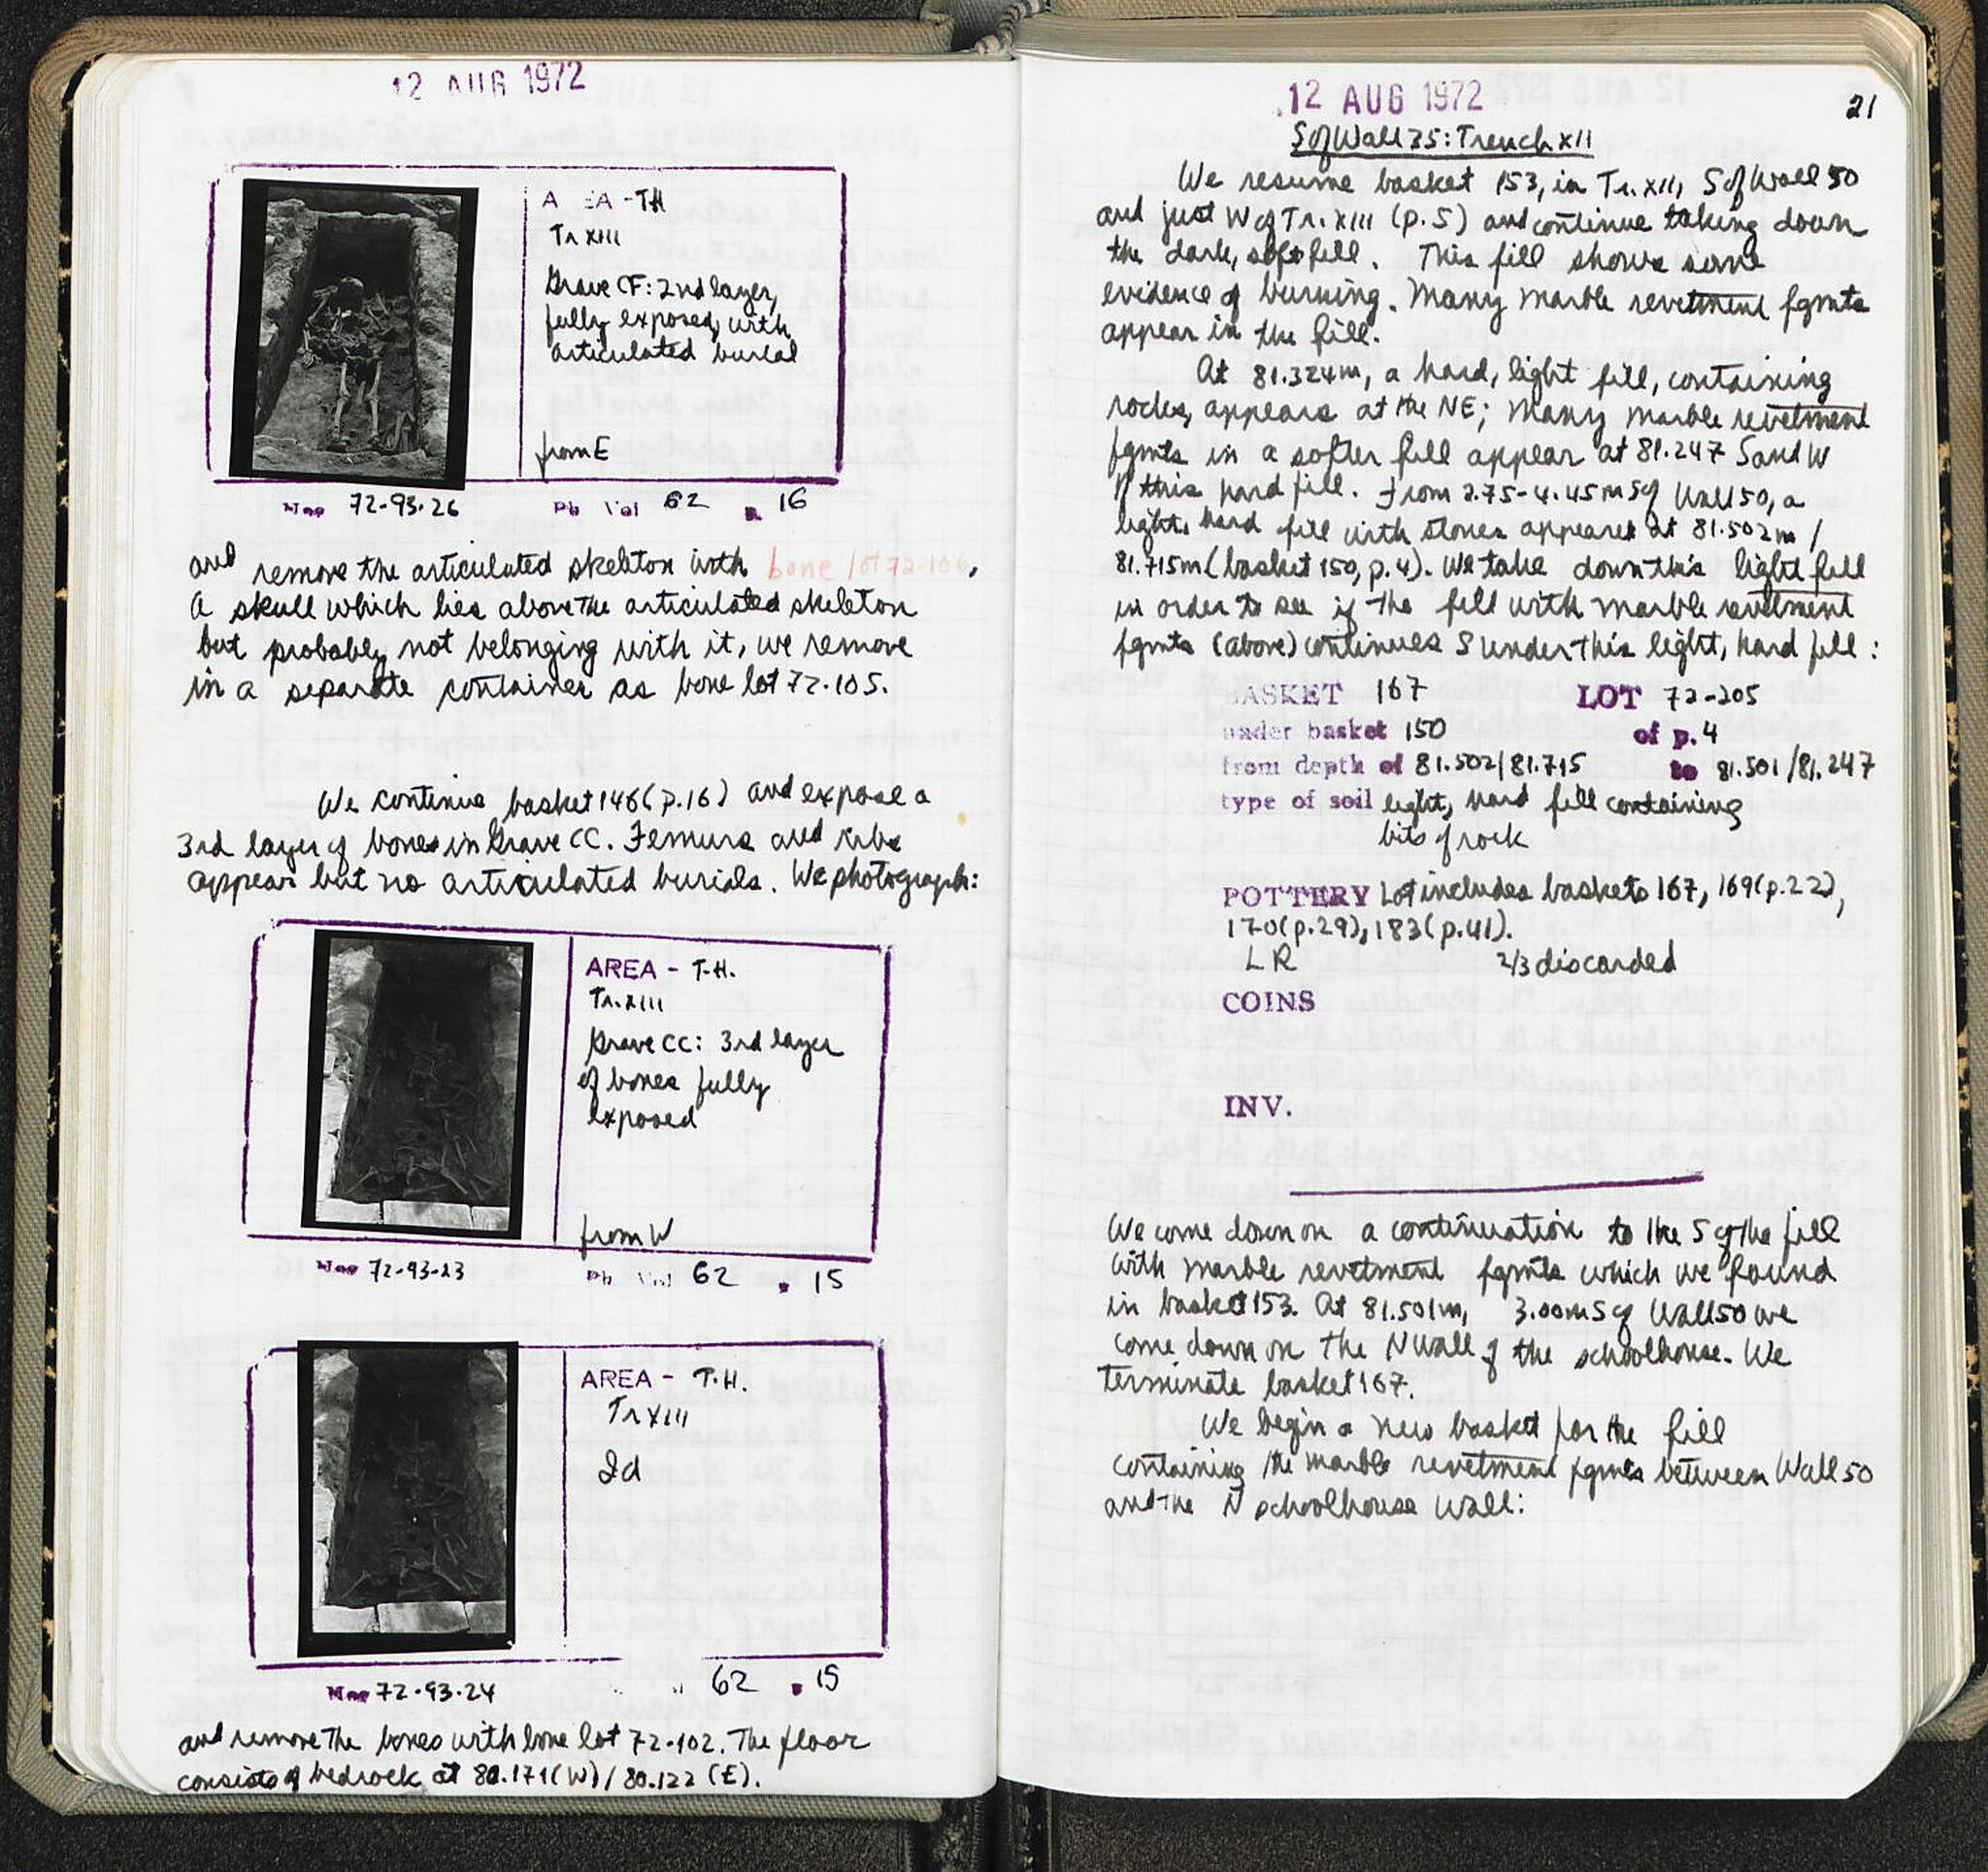 12 AUG 1972
A EA - TH
Tr XIII
Grave CF: 2nd layer,
fully exposed, with
articulated burial
from E
Neg 72-93-26 Ph Vol 62 p. 16
and remove the articulated skeleton with bone lot 72-106,
A skull which lies above the articulated skeleton
but probably not belonging with it, we remove
in a separate container as bone lot 72-105.
We continue basket 146 (p.16) and expose a
3rd layer of bones in Grave CC. Femurs and ribs
appear but no articulated burials. We photograph:
AREA - T.H.
Tr. XIII
Grave CC: 3rd layer
of bones fully
exposed
from W
Neg 72-93-23 Ph Vol 62 p. 15
AREA - T.H.
Tr XIII
Id
Neg 72-93-24 62 p. 15
and remove the bones with bone lot 72-102. The floor
consists of bedrock at 80.171 (W) / 80.122 (E).
12 AUG 1972
21
S of Wall 35: Trench XII
We resume basket 153, in Tr. XII, S of Wall 50
and just W of Tr. XIII (p. 5) and continue taking down
the dark, soft fill. This fill shows some
evidence of burning. Many marble revetment fgmts
appear in the fill.
At 81.324m, a hard, light fill, containing
rocks, appears at the NE; many marble revetment
fgmts in a softer fill appear at 81.247 S and W
of this hard fill. From 2.75-4.45m S of Wall 50, a
light, hard fill with stones appeared at 81.502m /
81.715m (basket 150, p. 4). We take down this light fill
in order to see if the fill with marble revetment
fgmts (above) continues S under this light, hard fill:
BASKET 167 LOT 72-205
under basket 150 of p. 4
from depth of 81.502/81.715 to 81.501/81.247
type of soil light, hard fill containing
bits of rock
POTTERY Lot includes baskets 167, 169 (p.22),
170 (p.29), 183 (p.41).
LR 2/3 discarded
COINS
INV.
We come down on a continuation to the S of the fill
with marble revetment fgmts which we found
in basket 153. At 81.501m, 3.00m S of Wall 50 we
come down on the N wall of the schoolhouse. We
terminate basket 167.
We begin a new basket for the fill
containing the marble revetment fgmts between Wall 50
and the N schoolhouse wall: